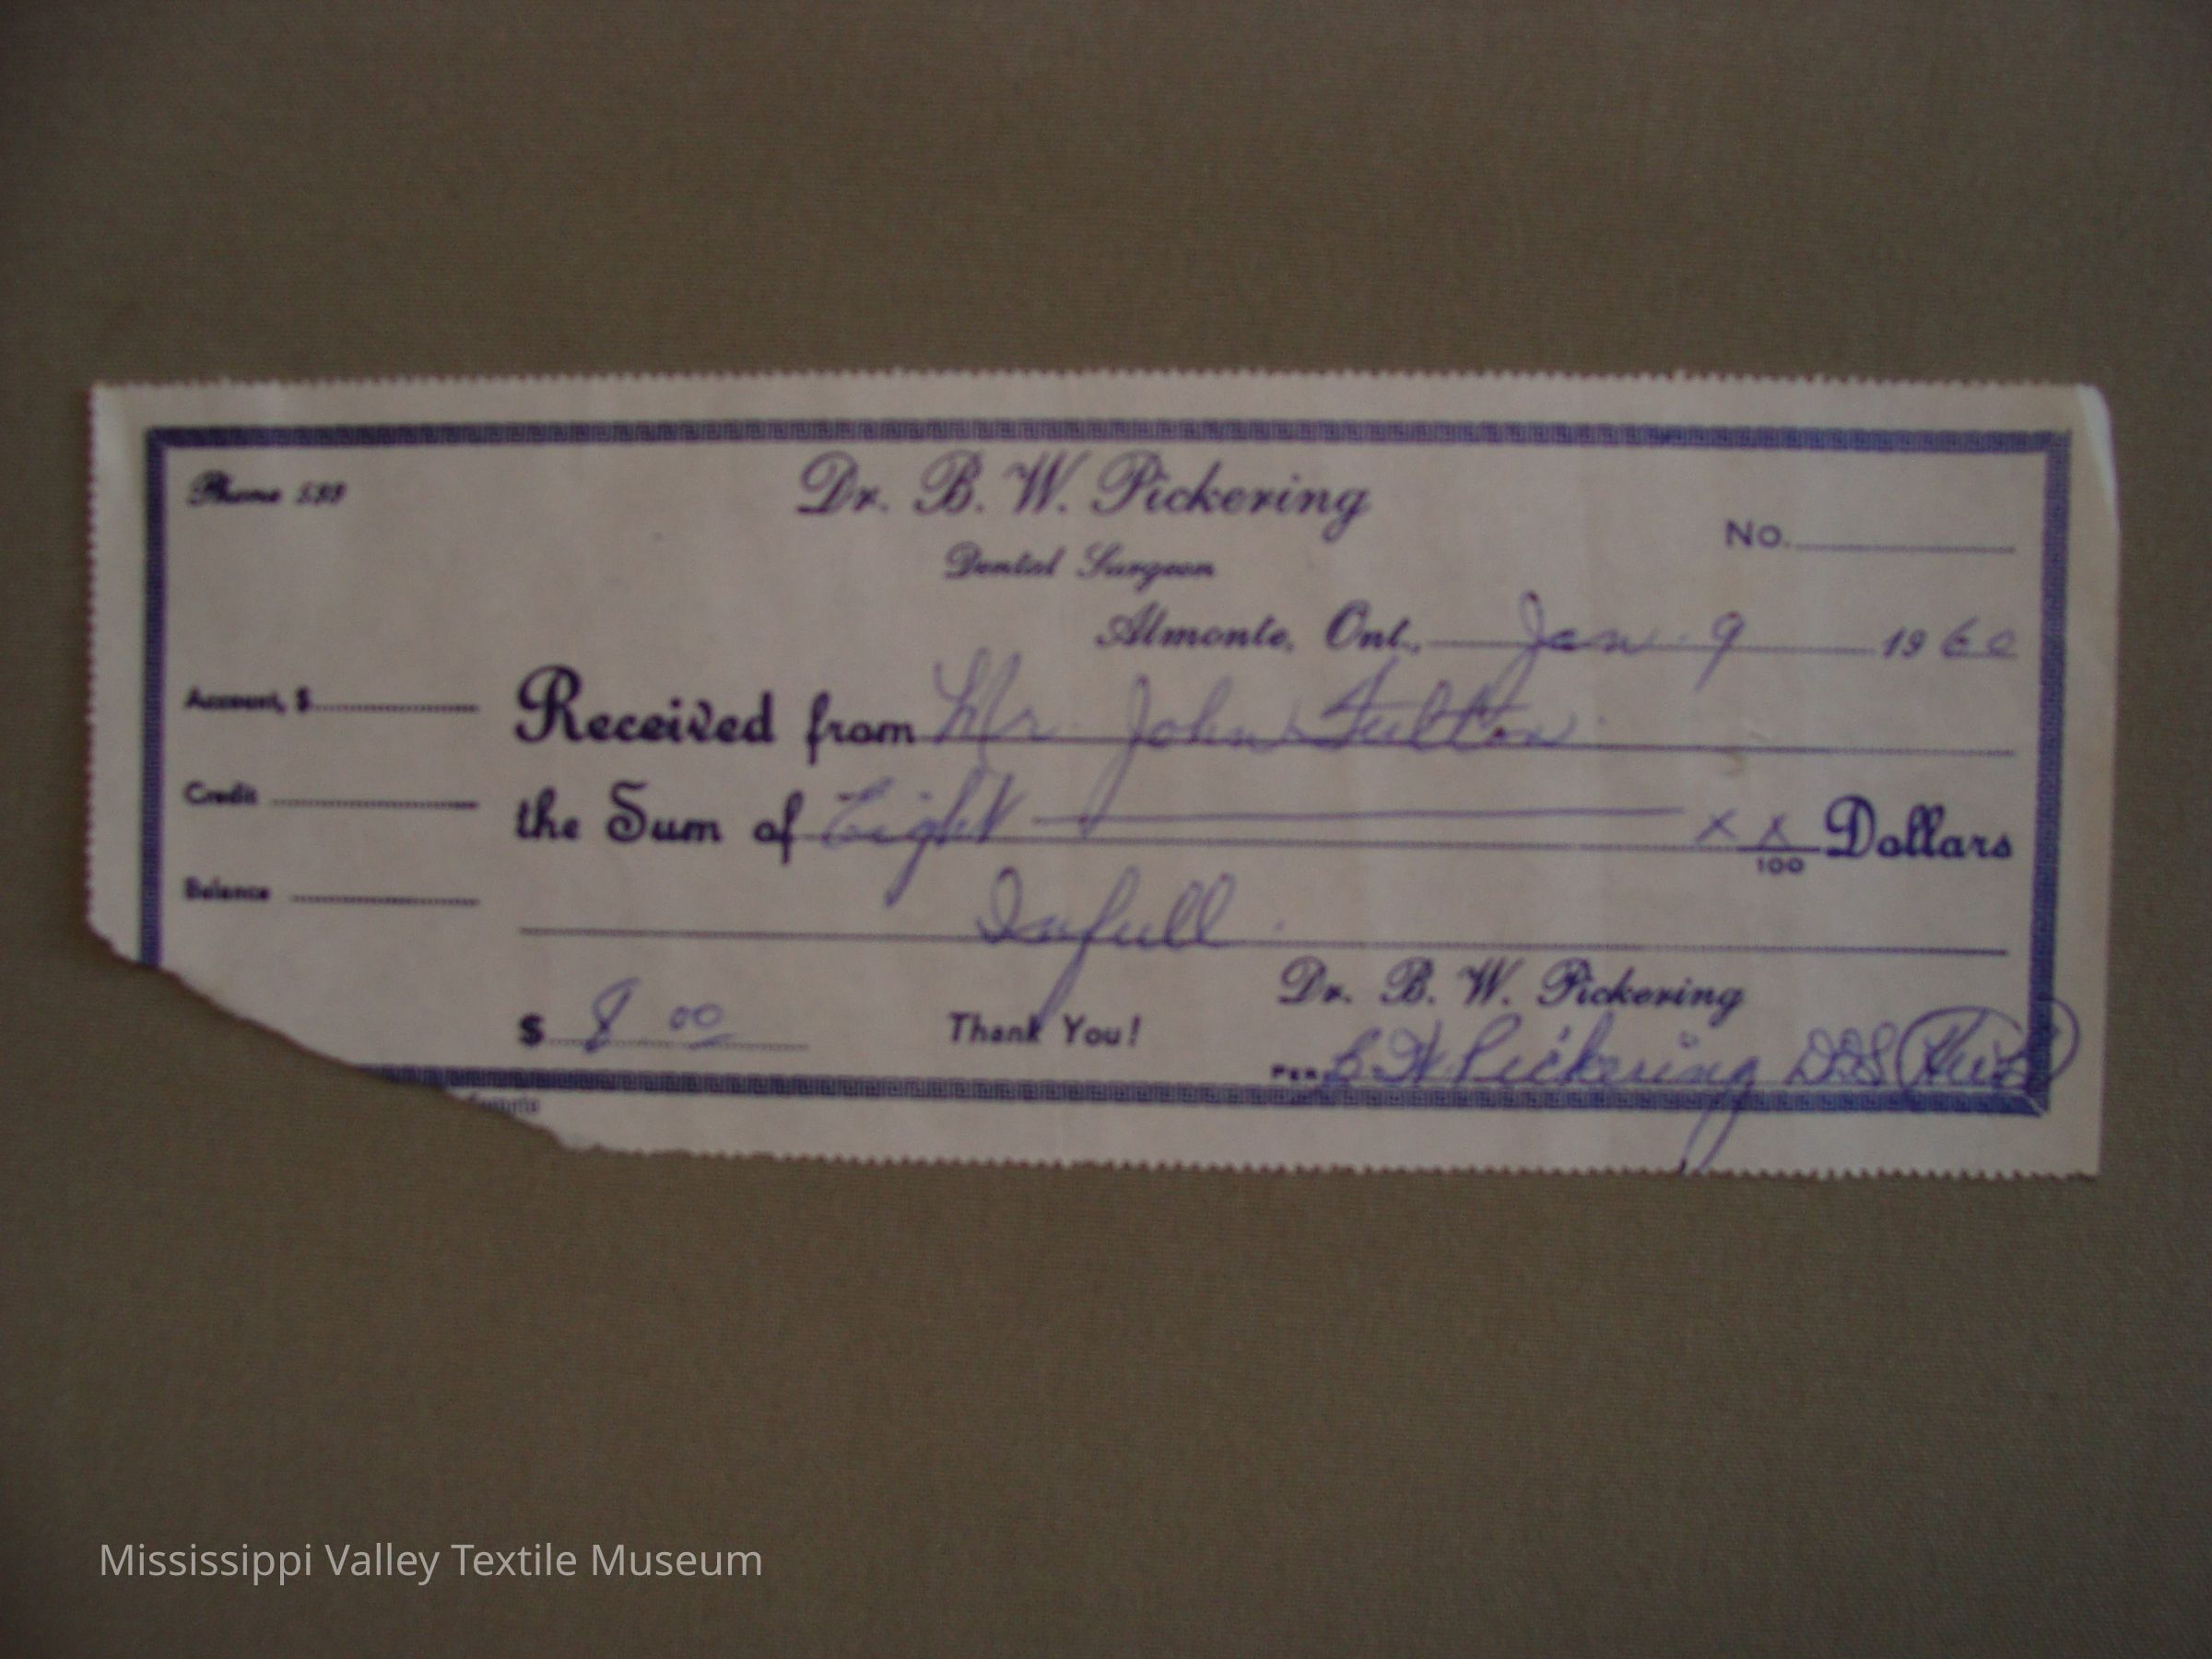 Phone
Dr. B. W. Pickering
Dental Surgeon
No.
Almonte, Ont., Jan. 9 1960
Account, $
Received from Mr. John Fulton.
Credit
the Sum of Eight x x/100 Dollars
Balance
In full.
$ 8 00
Thank You!
Dr. B. W. Pickering
PER B W Pickering DDS
Mississippi Valley Textile Museum